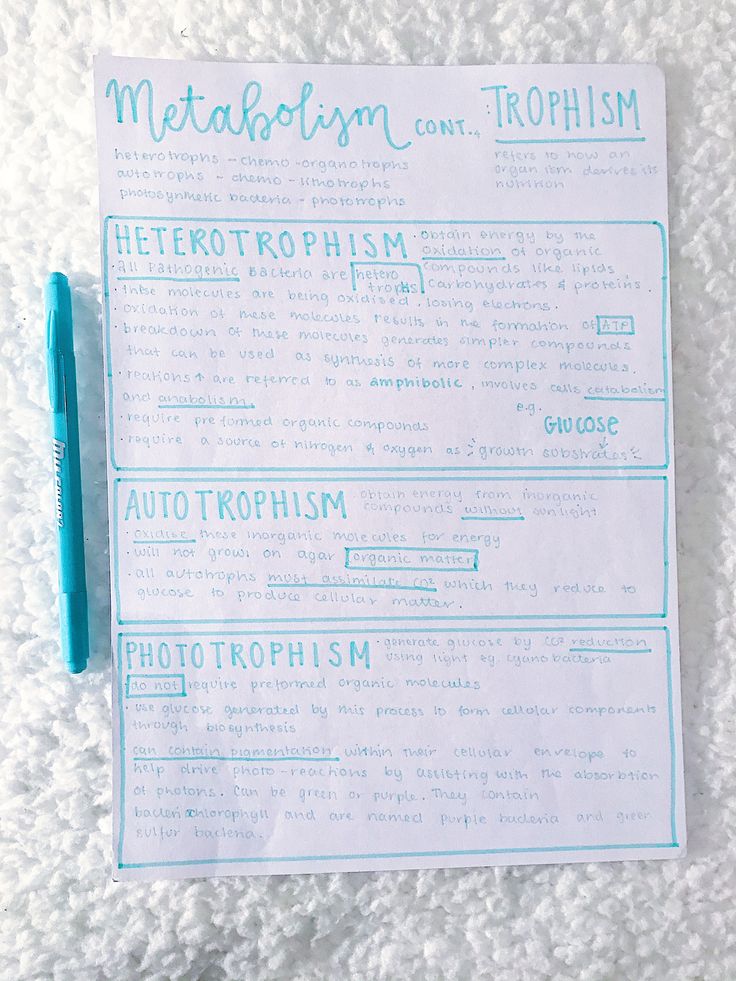 Metabolism CONT. : TROPHISM
heterotrophs - chemo-organotrophs
autotrophs - chemo-lithotrophs
photosynthetic bacteria - phototrophs
refers to how an
organ ism derives its
nutrition
HETEROTROPHISM
· obtain energy by the
oxidation of organic
compounds like lipids
carbohydrates & proteins.
· all pathogenic bacteria are hetero
trophs
· these molecules are being oxidised, losing electrons.
· oxidation of these molecules results in the formation of ATP
· breakdown of these molecules generates simpler compounds
that can be used as synthesis of more complex molecules.
· reations ↑ are referred to as amphibolic, involves cells catabolism
and anabolism.
· require preformed organic compounds
e.g. GLUCOSE
· require a source of nitrogen & oxygen as growth substrates
AUTOTROPHISM
· obtain energy from inorganic
compounds without sunlight
· oxidise these inorganic molecules for energy
· will not grows on agar organic matter
· all autotrophs must assimilate CO² which they reduce to
glucose to produce cellular matter.
PHOTOTROPHISM
· generate glucose by CO² reduction
using light eg. cyanobacteria
· do not require preformed organic molecules
· use glucose generated by this process to form cellular components
through biosynthesis
can contain pigmentation within their cellular envelope to
help drive photo-reactions by assisting with the absorbtion
of photons. Can be green or purple. They contain
chlorophyll and are named purple bacteria and green
sulfur bacteria.